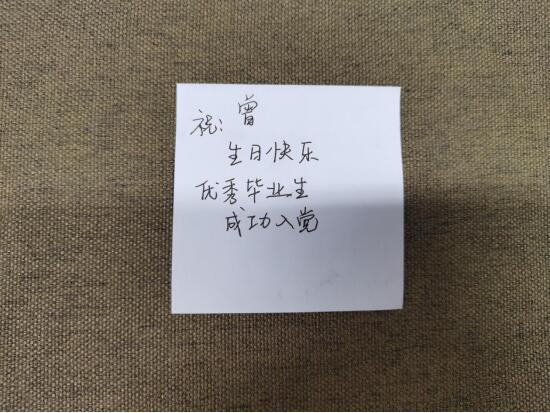 祝：曾
生日快乐
优秀毕业生
成功入党